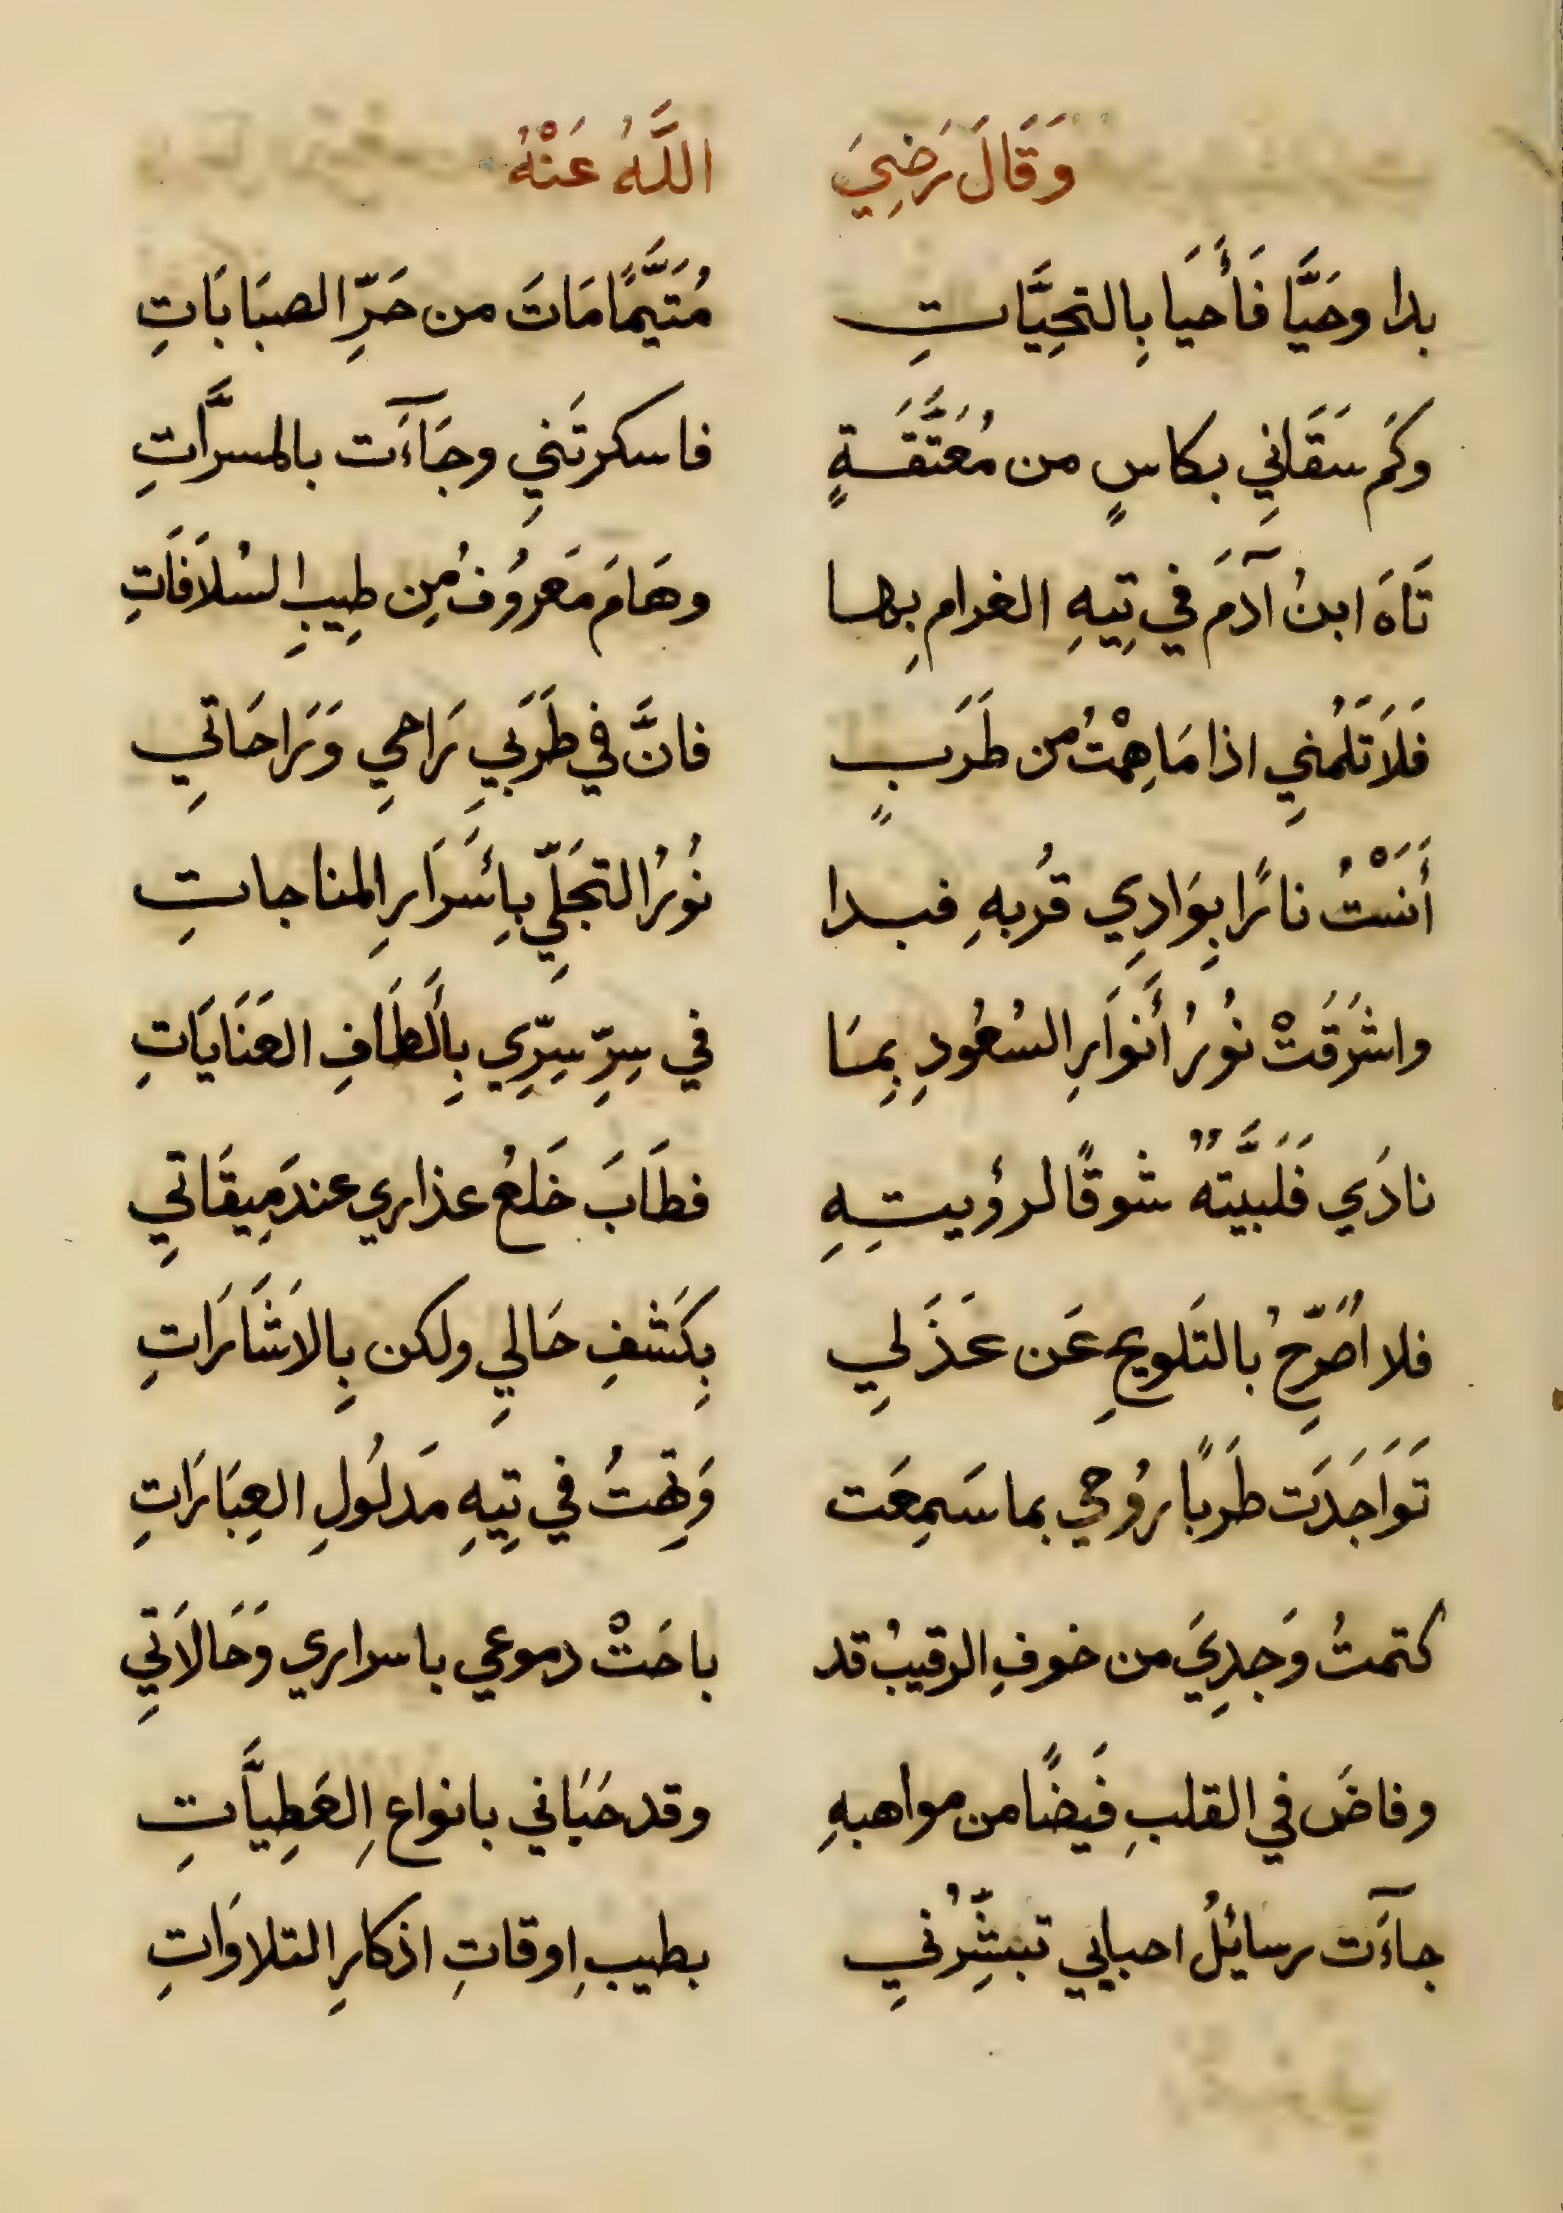 وَقَالَ رَضِيَ اللَّهُ عَنْهُ
بدا وحَيَّا فَأَحيَا بِالتحِيَّاتِ مُتَيَّمًا مَاتَ من حَرِّ الصبَابَاتِ
وكَم سَقَانِي بكاسٍ من مُعَتَّقَةٍ فاسكرتَنيِ وجَآءَت بالمسرَّاتِ
تَاهَ ابنُ آدَمَ في تِيهِ الغرام بِها وهَامَ مَعرُوفُ مِن طِيبِ السُلاَفَاتِ
فَلاَ تَلُمنيِ اذا مَا هِمْتُ من طَرَبٍ فانَّ في طَرَبيِ رَاحيِ وَرَاحَاتيِ
أَنَسْتُ نارًا بِوَادِي قُربهِ فبدا نُورُ التجَلِّي بِائسرَارِ المناجاتِ
واشرَقَتْ نُورُ أَنوَارِ السُعُودِ بِمَا في سِرِّ سِرِّي بِأَلطَافِ العَنَايَاتِ
نادَي فَلَبَّيتهُ شوقًا لرؤيتِهِ فطَابَ خَلعُ عذاري عندَ مِيقَاتيِ
فلا اُصَرِّحُ بالتَلويحِ عَن عَذَلِي بِكَشفِ حَاليِ ولكن بِالاَشَارَاتِ
تَوَاجَدَت طَربًا رُوحي بما سَمِعَت وَتِهتُ في تِيهِ مَدلُولِ العِبَارَاتِ
كتمتُ وَجدِيَ من خوفِ الرقيبُ قد باحَتْ دموعي باسراري وَحَالاَتيِ
وفاضَ في القلبِ فَيضًا من مواهبهِ وقد حَبَاني بانواعِ العَطِيَّاتِ
جآءَت رسائلُ احبابي تبشِّرُنيِ بطيبِ اوقاتِ اذكارِ التلاوَاتِ